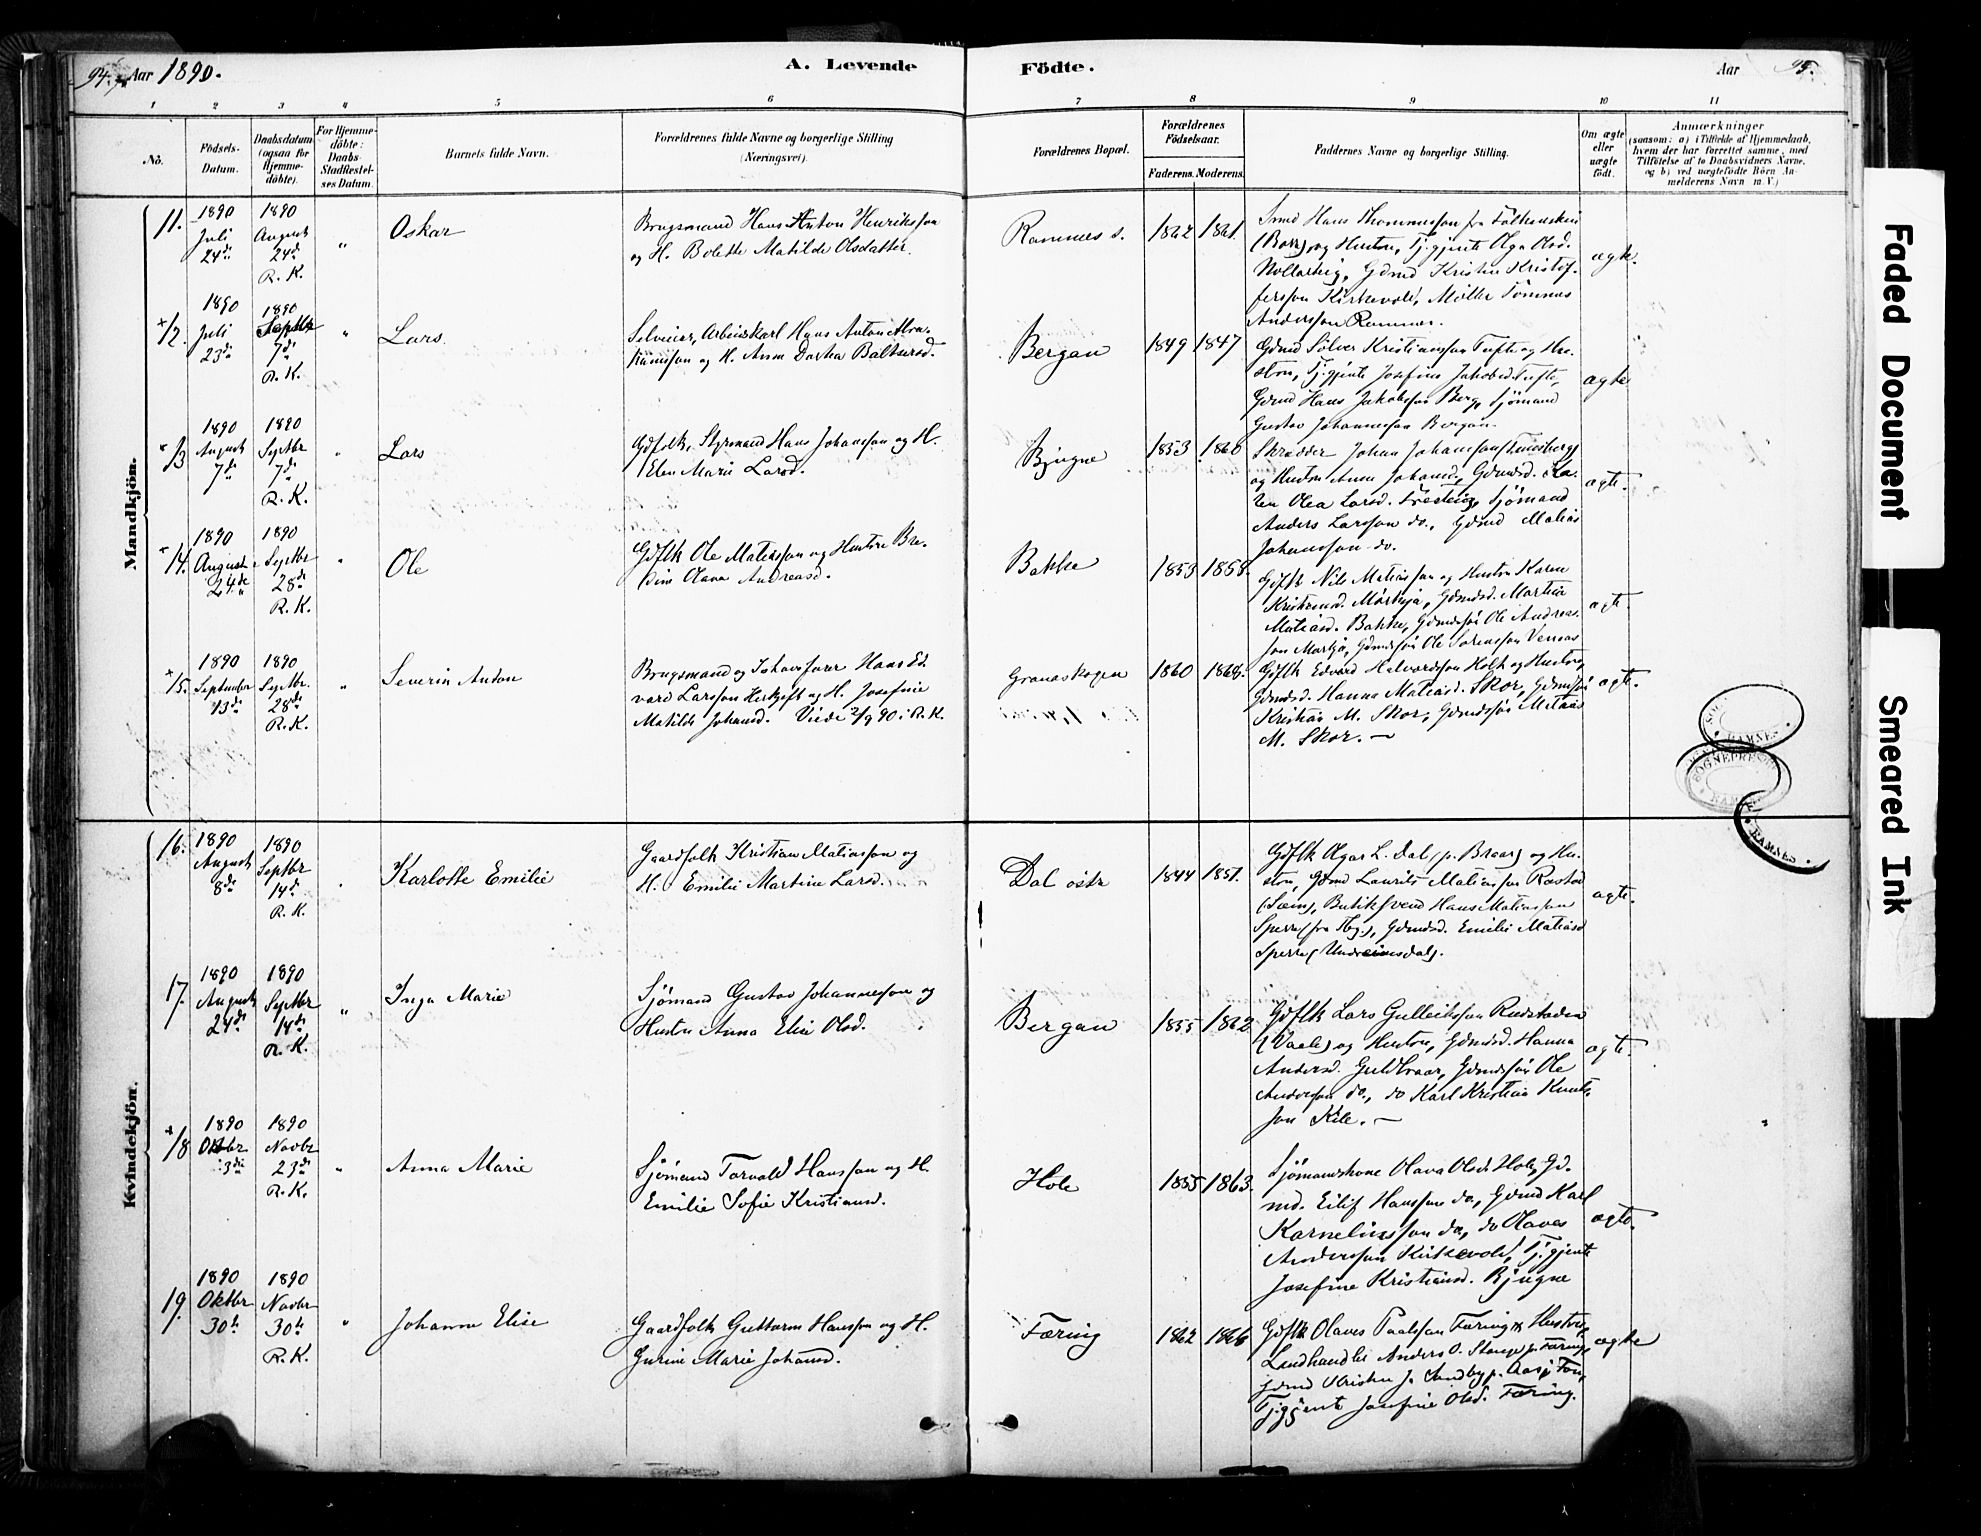 94. Aar 1890. A. Levende Födte. Aar 95.
1 2 3 4 5 6 7 8 9 10 11
No.
Födsels-
Datum.
Daabsdatum
(ogsaa for
Hjemme-
döbte).
For Hjemme-
döbte:
Daabs-
Stadfæstel-
ses Datum.
Barnets fulde Navn.
Forældrenes fulde Navne og borgerlige Stilling
(Næringsvei).
Forældrenes Bopæl.
Forældrenes
Födselsaar.
Faderens. Moderens.
Faddernes Navne og borgerlige Stilling.
Om ægte
eller
uægte
födt.
Anmærkninger
(saasom: a) i Tilfælde af Hjemmedaab,
hvem der har forrettet samme, med
Tilföielse af to Daabsvidners Navne,
og b) ved uægtefödte Börn An-
melderens Navn m. V.)
Mandkjön.
11.
1890
Juli
24de
1890
August
24de
R. K.
"
Oskar
Brugsmand Hans Anton Henriksson
og H. Bolette Matilde Olsdatter.
Ramnes s.
1862 1861.
Smed Hans Thommesson fra
og Hustru, Tj.gjente Olga Olsd.
Gdmd Kristen Kristof-
fersson Kirkevold, Møller Tommes
Andersson Ramnes.
ægte.
12.
1890
Juli
23de
1890
Septbr
7de
R. K.
"
Lars
Selveier, Arbeidskarl Hans Anton Abra-
hamsson og H. Anna Dorthea Baltsersd.
Bergan
1849 1847
Gdmd Sölver Kristiansson Tufte og Hu-
stru, Tj.gjente Josefine Jakobsd. Tufte,
Gdmd Hans Jakobsson Berg, Sjömand
Gustav Johannesson Bergan.
ægte
13
1890
August
7de
1890
Septbr
7de
R. K.
"
Lars
Gdfolk, Styrmand Hans Johansson og H.
Elen Marie Larsd.
Bjugne
1853 1860
Skrædder Johan Johansson
og Hustru Anna Johansd, Gdmdsd.
Olea Larsd. Sjömand
Anders Larsson do., Gdmd Matias
Johansson do.
ægte.
14.
1890
August
24de
1890
Septbr
28de
R. K.
"
Ole
Gdflk Ole Matiasson og Hustru Bre-
dine Olava Andreasd.
Bakke
1853 1858.
Gdflk Nils Matiasson og Hustru Karen
Martea
Matiasd. Bakke, Gdmdssön Ole Andreas-
son Gdmdssön Ole Sörensson
ægte.
15.
1890
September
13de
1890
Septbr.
28de
R. K.
"
Severin Anton
Brugsmand og Hans Ed-
vard Larsson og H. Josefine
Matilde Johansd. Viede 2/9 90 i R. K.
Granaskogen
1860 1868.
Gdflk Edvard Halvordsson Holt og Hustru,
Gdmdsd. Hanna Matiasd. Skor, Gdmdssön
Kristian M. Skor, Gdmdssön Matias
M. Skor. —
ægte.
SOGNEPRESTEN
RAMNES
Kvindekjön.
16.
1890
August
8de
1890
Septbr
14de
R. K.
Karlotte Emilie
Gaardfolk Kristian Matiasson og
H. Emilie Martine Larsd.
Dal östr
1844 1851.
Gdflk L. Dal og Hu-
stru, Gdmd Laurits Matiasson Rastad
(Sem), Butiksvend Hans Matiasson
Sperre (fra Tbg.), Gdmdsd. Emilie Matiasd
Sperre (Undrumsdal).
ægte.
17.
1890
August
24de
1890
Septbr
14de
R. K.
"
Inga Marie
Sjömand Gustav Johannesson og
Hustru Anna Elise Olsd.
Bergan
1855 1862
Gdflk Lars Gulleiksson Rudstaden
(Vaale) og Hustru, Gdmdsd. Hanna
Andersd. Guldkaar, Gdmdssön Ole
Andersson do., do Karl Kristian Knuts-
son Kile. —
ægte.
18
1890
Oktbr
3die
1890
Novbr
23de
R. K.
"
Anna Marie
Sjömand Torvald Hansson og H.
Emilie Sofie Kristiansd.
Hole
1855 1863.
Sjömandskone Olava Olsd. Hole, Gd-
md. Eilif Hansson do., Gdmd Karl
Korneliusson do, do Olaves
Andersson Kirkevold, Tj.gjente
Josefine Kristiansd. Bjugne
ægte.
19.
1890
Oktbr
30te
1890
Novbr
30te
R. K.
"
Johanne Elise
Gaardfolk Guttorm Hansson og H.
Gurine Marie Johansd.
Færing
1862 1866
Gdflk Olaves Paalsson Færing og Hustru,
Landhandler Anders O. Stange p. Færing,
Gdmd Kristen J. Sandby p. Aas,
Tj.gjente Josefine Olsd. Færing.
ægte
Faded Document
Smeared Ink